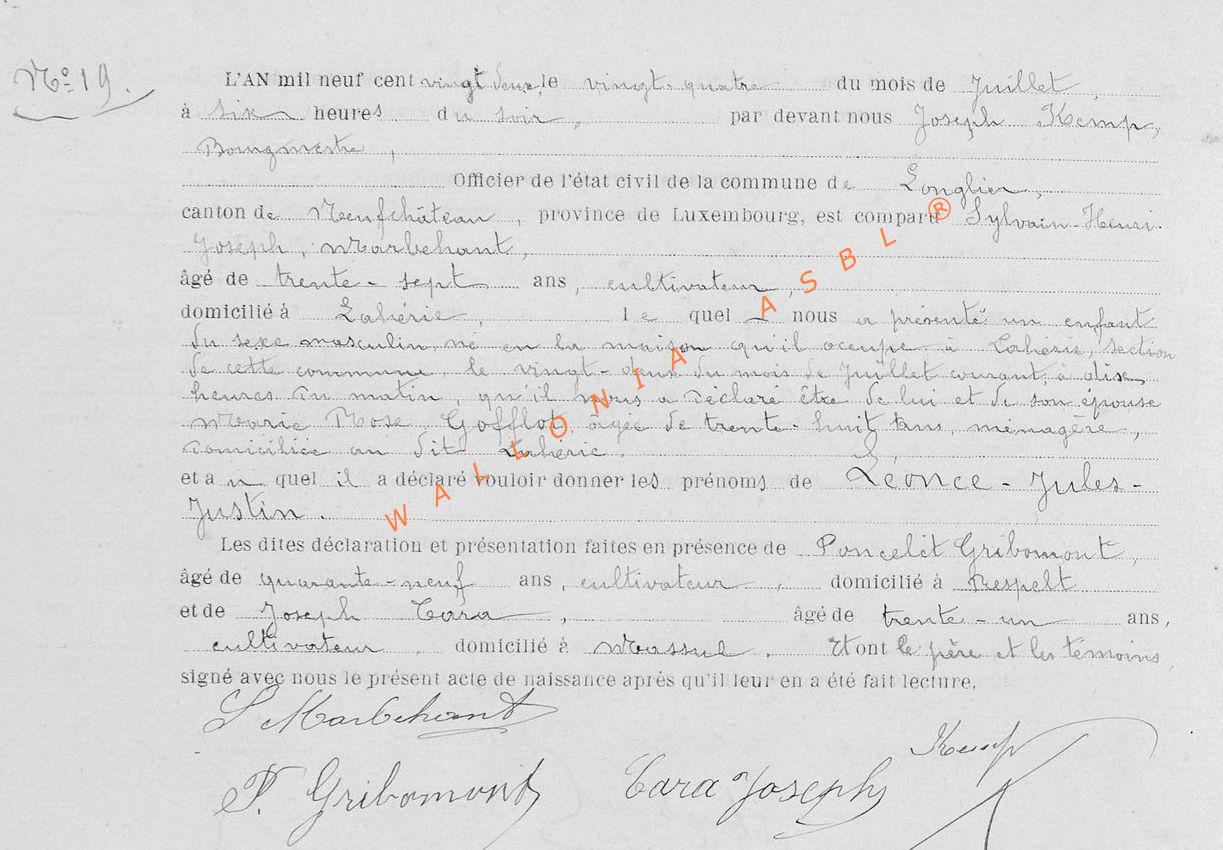 Nº 19.
L'AN mil neuf cent vingt deux, le vingt-quatre du mois de Juillet,
à six heures du soir, par devant nous Joseph Kemp,
Bourgmestre,
Officier de l'état civil de la commune de Longlier,
canton de Neufchâteau, province de Luxembourg, est comparu Sylvain-Henri-
Joseph, Marbehant,
âgé de trente-sept ans, cultivateur,
domicilié à Lahérie, le quel nous a présenté un enfant
du sexe masculin, né en la maison qu'il occupe à Lahérie, section
de cette commune, le vingt-deux du mois de Juillet courant, à
heures du matin, qu'il nous a déclaré être de lui et de son épouse
Marie Rose, Gofflot, âgée de trente-huit ans, ménagère,
domiciliée au dit Lahérie,
et au quel il a déclaré vouloir donner les prénoms de Léonce-Jules-
Justin.
Les dites déclaration et présentation faites en présence de Poncelet Gribomont,
âgé de quarante-neuf ans, cultivateur, domicilié à Respelt
et de Joseph Cara, âgé de trente-un ans,
cultivateur, domicilié à Massul. Et ont le père et les témoins
signé avec nous le présent acte de naissance après qu'il leur en a été fait lecture.
S Marbehant
Kemp
P. Gribomont
Cara Joseph
WALLONIA ASBL ®